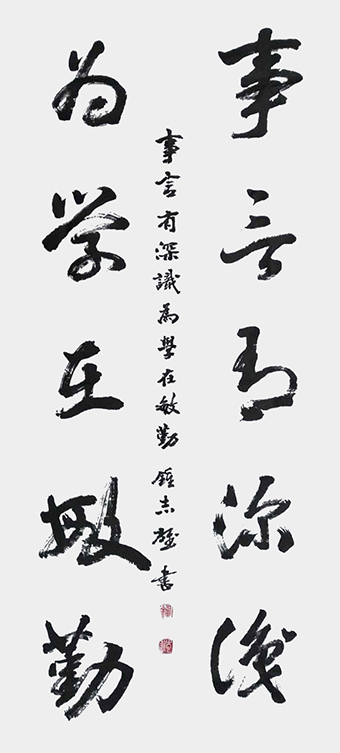 事言有深識
事言有深識為學在敏勤 志 書
为学在敏勤